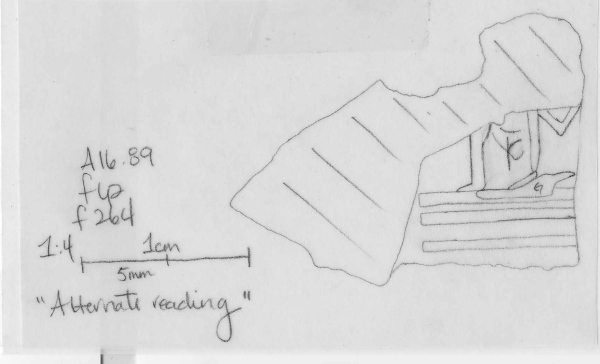 A16.89
f264
1:4
1cm
5mm
"Alternate reading"